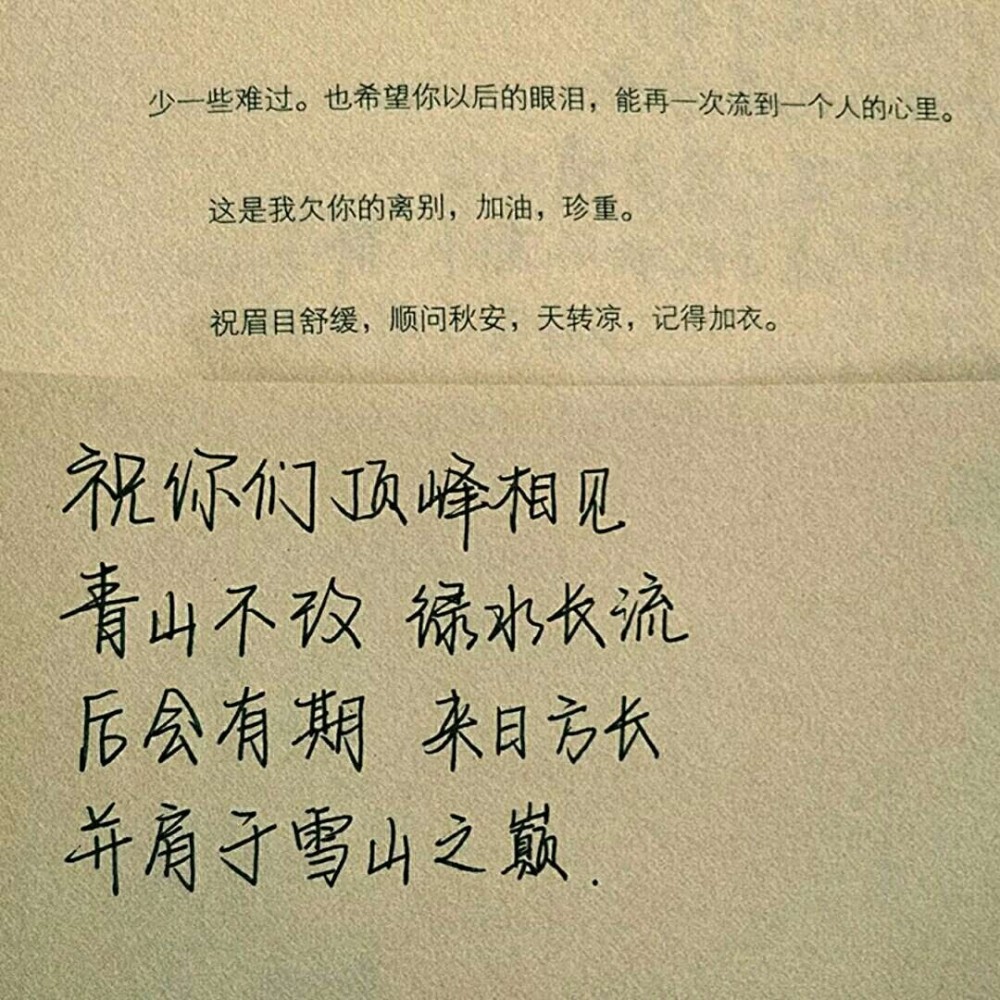 少一些难过。也希望你以后的眼泪，能再一次流到一个人的心里。
这是我欠你的离别，加油，珍重。
祝眉目舒缓，顺问秋安，天转凉，记得加衣。
祝你们顶峰相见
青山不改 绿水长流
后会有期 来日方长
并肩于雪山之巅.